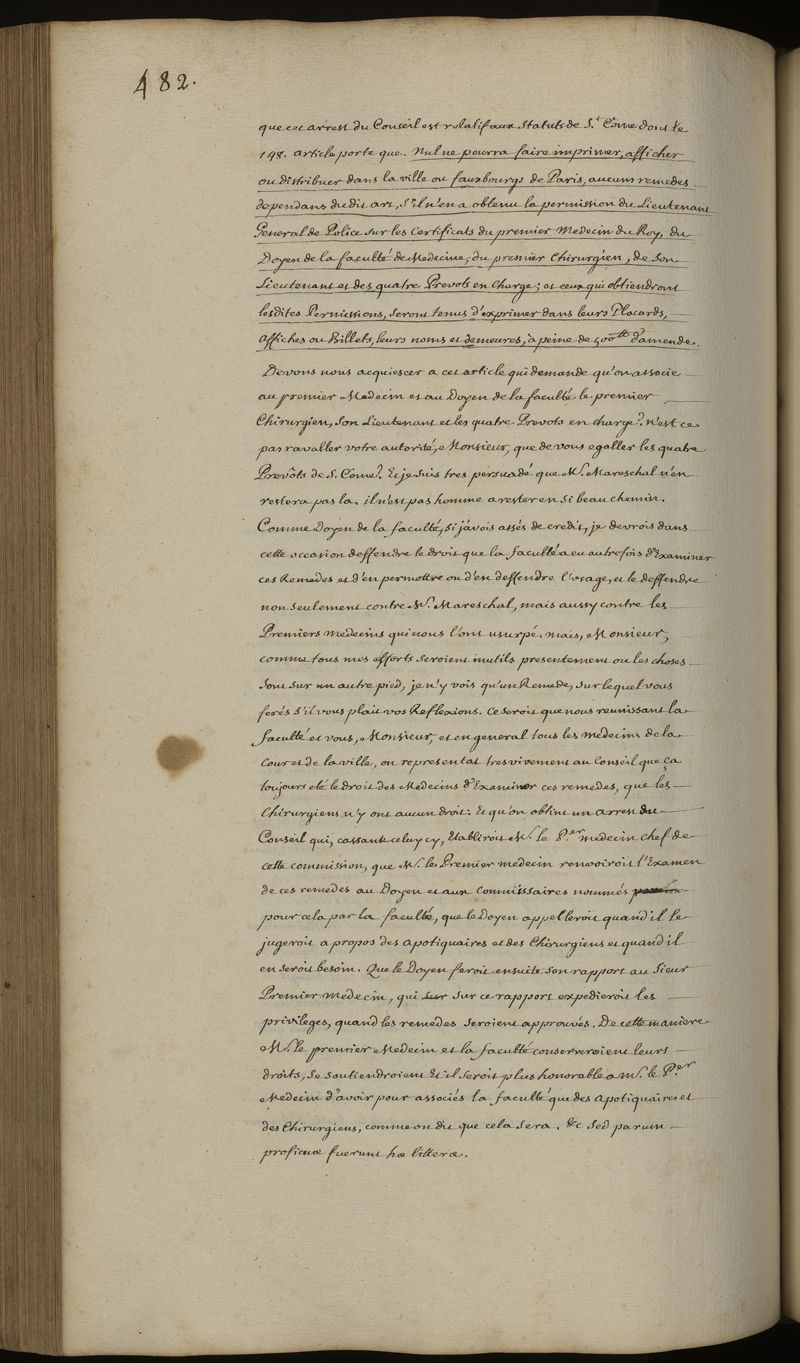 482.
que cet arrest du Conseil est relatif aux Statuts de S.t Côme dont le
148. article porte que. Nul ne pourra faire imprimer, afficher
ou distribuer dans la ville ou fauxbourgs de Paris, aucuns remedes
dependans dudit art, S'il n'en a obtenu la permission du Lieutenant
General de Police sur les Certificats du premier Medecin du Roy, du
Doyen de la faculté de Medecine, du premier Chirurgien, de son
Lieutenant et des quatre Prevots en Charge; et ceux qui obtiendront
lesdites Permissions, seront tenus d'exprimer dans leurs Placards,
affiches ou Billets, leurs noms et demeures, à peine de 500tt d'amende.
Devons nous acquiescer a cet article qui demande qu'on associe
au premier Medecin et au Doyen de la faculté le premier
Chirurgien, son Lieutenant et les quatre Prevots en charge? n'est ce
pas ravaller votre autorité, Monsieur, que de vous egaller les quatre
Prevôts de S. Come? Et je suis tres persuadé que M.r Mareschal n'en
restera pas la. il n'est pas homme a rester en si beau chemin.
Comme Doyen de la faculté, si j'avois assés de credit, je devrois dans
cette occasion deffendre le droit que la faculté a eu autrefois d'Examiner
ces Remedes et d'en permettre ou d'en deffendre l'usage, et le deffendre
non seulement contre M.r Mareschal, mais aussy contre les
Premiers medecins qui nous l'ont usurpé. mais, Monsieur,
comme tous mes efforts seroient inutils presentement ou les choses
sont sur un autre pied, je n'y vois qu'un Remede, sur lequel vous
ferés s'il vous plait vos Reflexions. Ce seroit que nous reunissant la
faculté et vous, Monsieur, et en general tous les medecins de la
Cour et de la ville, on representat tres vivement au Conseil que ça
toujours eté le droit des Medecins d'Examiner ces remedes, que les
Chirurgiens n'y ont aucun droit. Et qu'on obtint un arrest du
Conseil qui, cassant celuy cy, Etabliroit M.r le P.er medecin chef de
cette commission, que M.r le Premier medecin renvoiroit l'Examen
de ces remedes au Doyen et aux Commissaires nommés
pour cela par la faculté, que le Doyen appelleroit quand il le
jugeroit a propos des apotiquaires et des Chirurgiens et quand il
en seroit besoin. Que le Doyen feroit ensuite son rapport au Sieur
Premier Medecin, qui sur ce rapport expedieroit les
privileges, quand les remedes seroient approuvés. De cette maniere
M.r le premier Medecin et la faculté conserveroient leurs
droits, se soutiendroient Et il seroit plus honorable a M.r le P.er
Medecin d'avoir pour associés la faculté que des apotiquaires et
des Chirurgiens, comme on dit que cela sera. &c Sed parum
proficuæ fuerunt hæ litteræ.